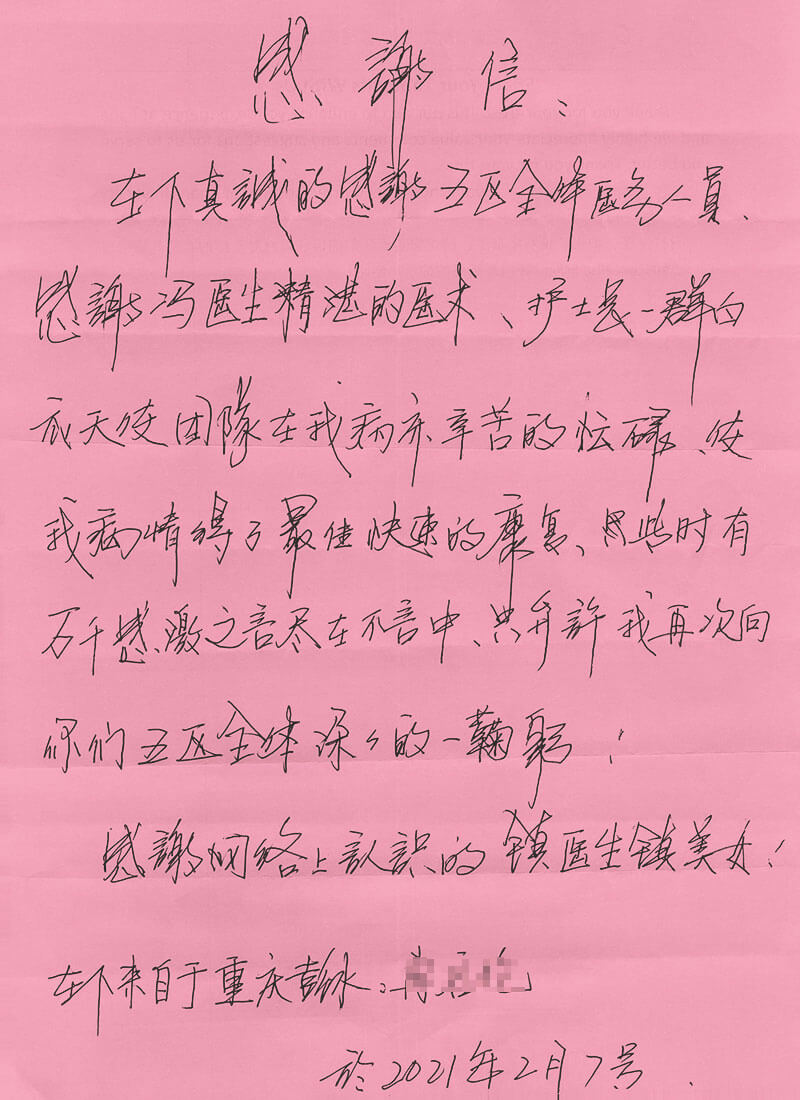 感謝信：
在下真誠的感謝五区全体医务人員、
感謝冯医生精湛的医术、护士長一群白
衣天使团隊在我病亦辛苦的忙碌、使
我病情得了最佳快速的康复、此时有
万千感激之言尽在不言中、只允許我再次向
你们五区全体深々的一鞠躬！
感謝网络上认識的镇医生镇美女！
在下来自于重庆彭水：
於2021年2月7号.